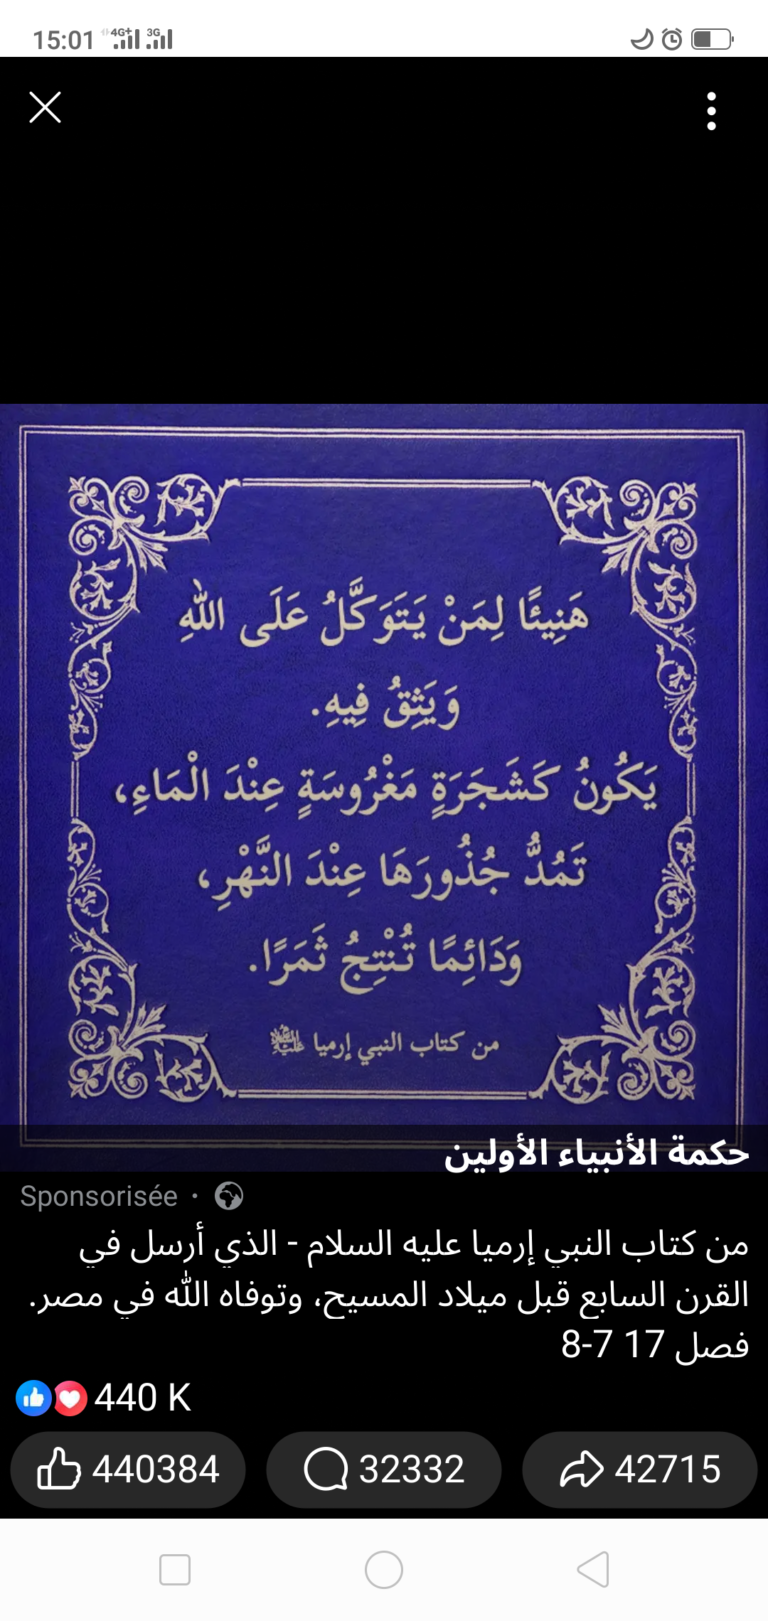 15:01 4G+ 3G
هَنِيئًا لِمَنْ يَتَوَكَّلُ عَلَى اللهِ
وَيَثِقُ فِيهِ.
يَكُونُ كَشَجَرَةٍ مَغْرُوسَةٍ عِنْدَ الْمَاءِ،
تَمُدُّ جُذُورَهَا عِنْدَ النَّهْرِ،
وَدَائِمًا تُنْتِجُ ثَمَرًا.
من كتاب النبي إرميا ﷵ
حكمة الأنبياء الأولين
Sponsorisée ·
من كتاب النبي إرميا عليه السلام - الذي أرسل في
القرن السابع قبل ميلاد المسيح، وتوفاه الله في مصر.
فصل 17 7-8
440 K
440384 32332 42715